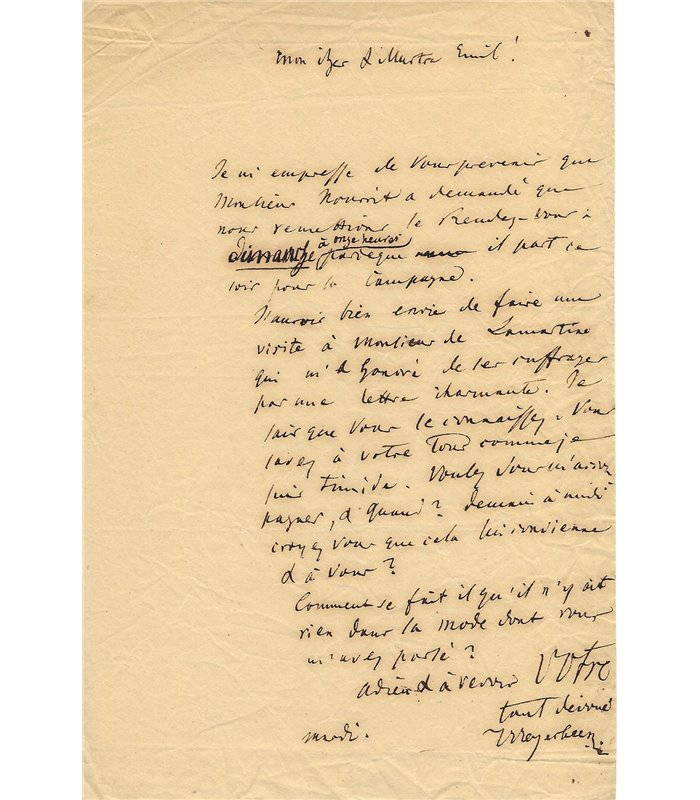 Mon cher & illustre Emil!
Je m'empresse de vous prevenir que
Monsieur Nourrit a demandé que
nous remettions le Rendez-vous à
dimanche à onze heures parceque il part ce
soir pour la Campagne.
J'aurois bien envie de faire une
visite à Monsieur de Lamartine
qui m'a honoré de ses suffrages
par une lettre charmante. Je
sais que vous le connaissez. Vous
savez à votre tour comme je
suis timide. Voulez vous m'accom
pagner, & quand? demain à midi
croyez vous que cela lui convienne
& à vous?
Comment se fait il qu'il n'y ait
rien dans la mode dont vous
m'avez parlé?
Adieu & à revoir Votre
tout devoué
Meyerbeer
mardi.